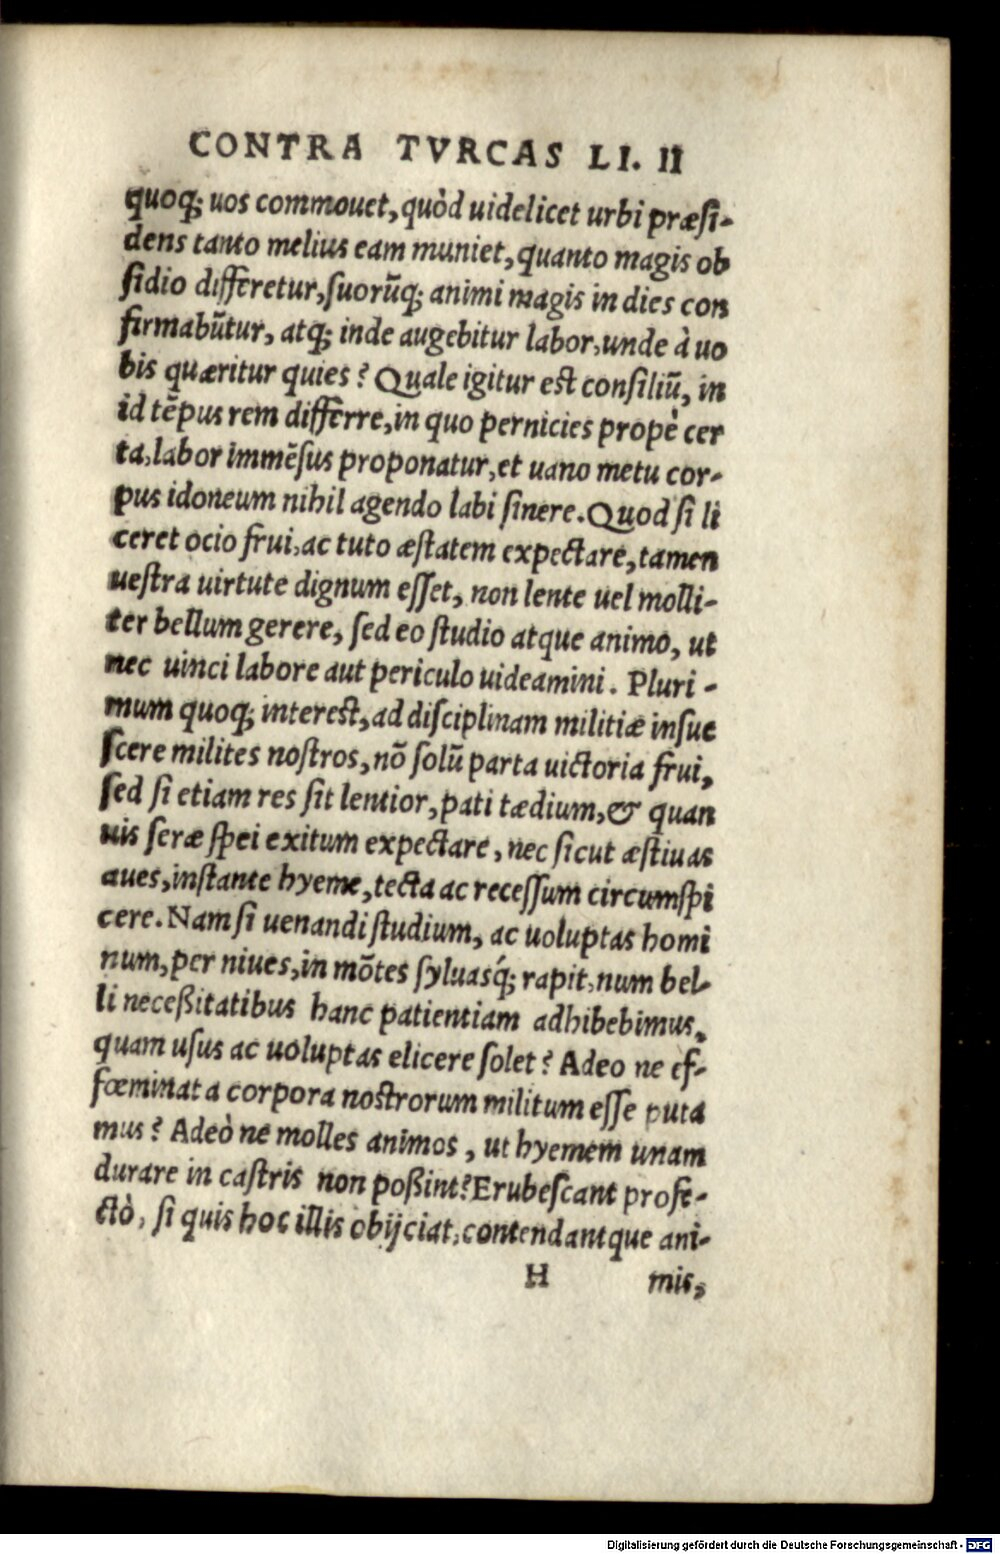 CONTRA TVRCAS LI. II
quoq; uos commouet, quòd uidelicet urbi præsi-
dens tanto melius eam muniet, quanto magis ob
sidio differetur, suorũq; animi magis in dies con
firmabũtur, atq; inde augebitur labor, unde à uo
bis quæritur quies? Quale igitur est consiliũ, in
id tẽpus rem differre, in quo pernicies propè cer
ta, labor immẽsus proponatur, et uano metu cor-
pus idoneum nihil agendo labi sinere. Quod si li
ceret ocio frui, ac tuto æstatem expectare, tamen
uestra uirtute dignum esset, non lente uel molli-
ter bellum gerere, sed eo studio atque animo, ut
nec uinci labore aut periculo uideamini. Pluri-
mum quoq; interest, ad disciplinam militiæ insue
scere milites nostros, nõ solũ parta uictoria frui,
sed si etiam res sit lentior, pati tædium, & quan
uis seræ spei exitum expectare, nec sicut æstiuas
aues, instante hyeme, tecta ac recessum circumspi
cere. Nam si uenandi studium, ac uoluptas homi
num, per niues, in mõtes syluasq́; rapit, num bel-
li neceßitatibus hanc patientiam adhibebimus,
quam usus ac uoluptas elicere solet? Adeo ne ef-
fœminata corpora nostrorum militum esse puta
mus? Adeò ne molles animos, ut hyemem unam
durare in castris non poßint? Erubescant profe-
ctò, si quis hoc illis obijciat, contendantque ani-
H mis,
Digitalisierung gefördert durch die Deutsche Forschungsgemeinschaft - DFG